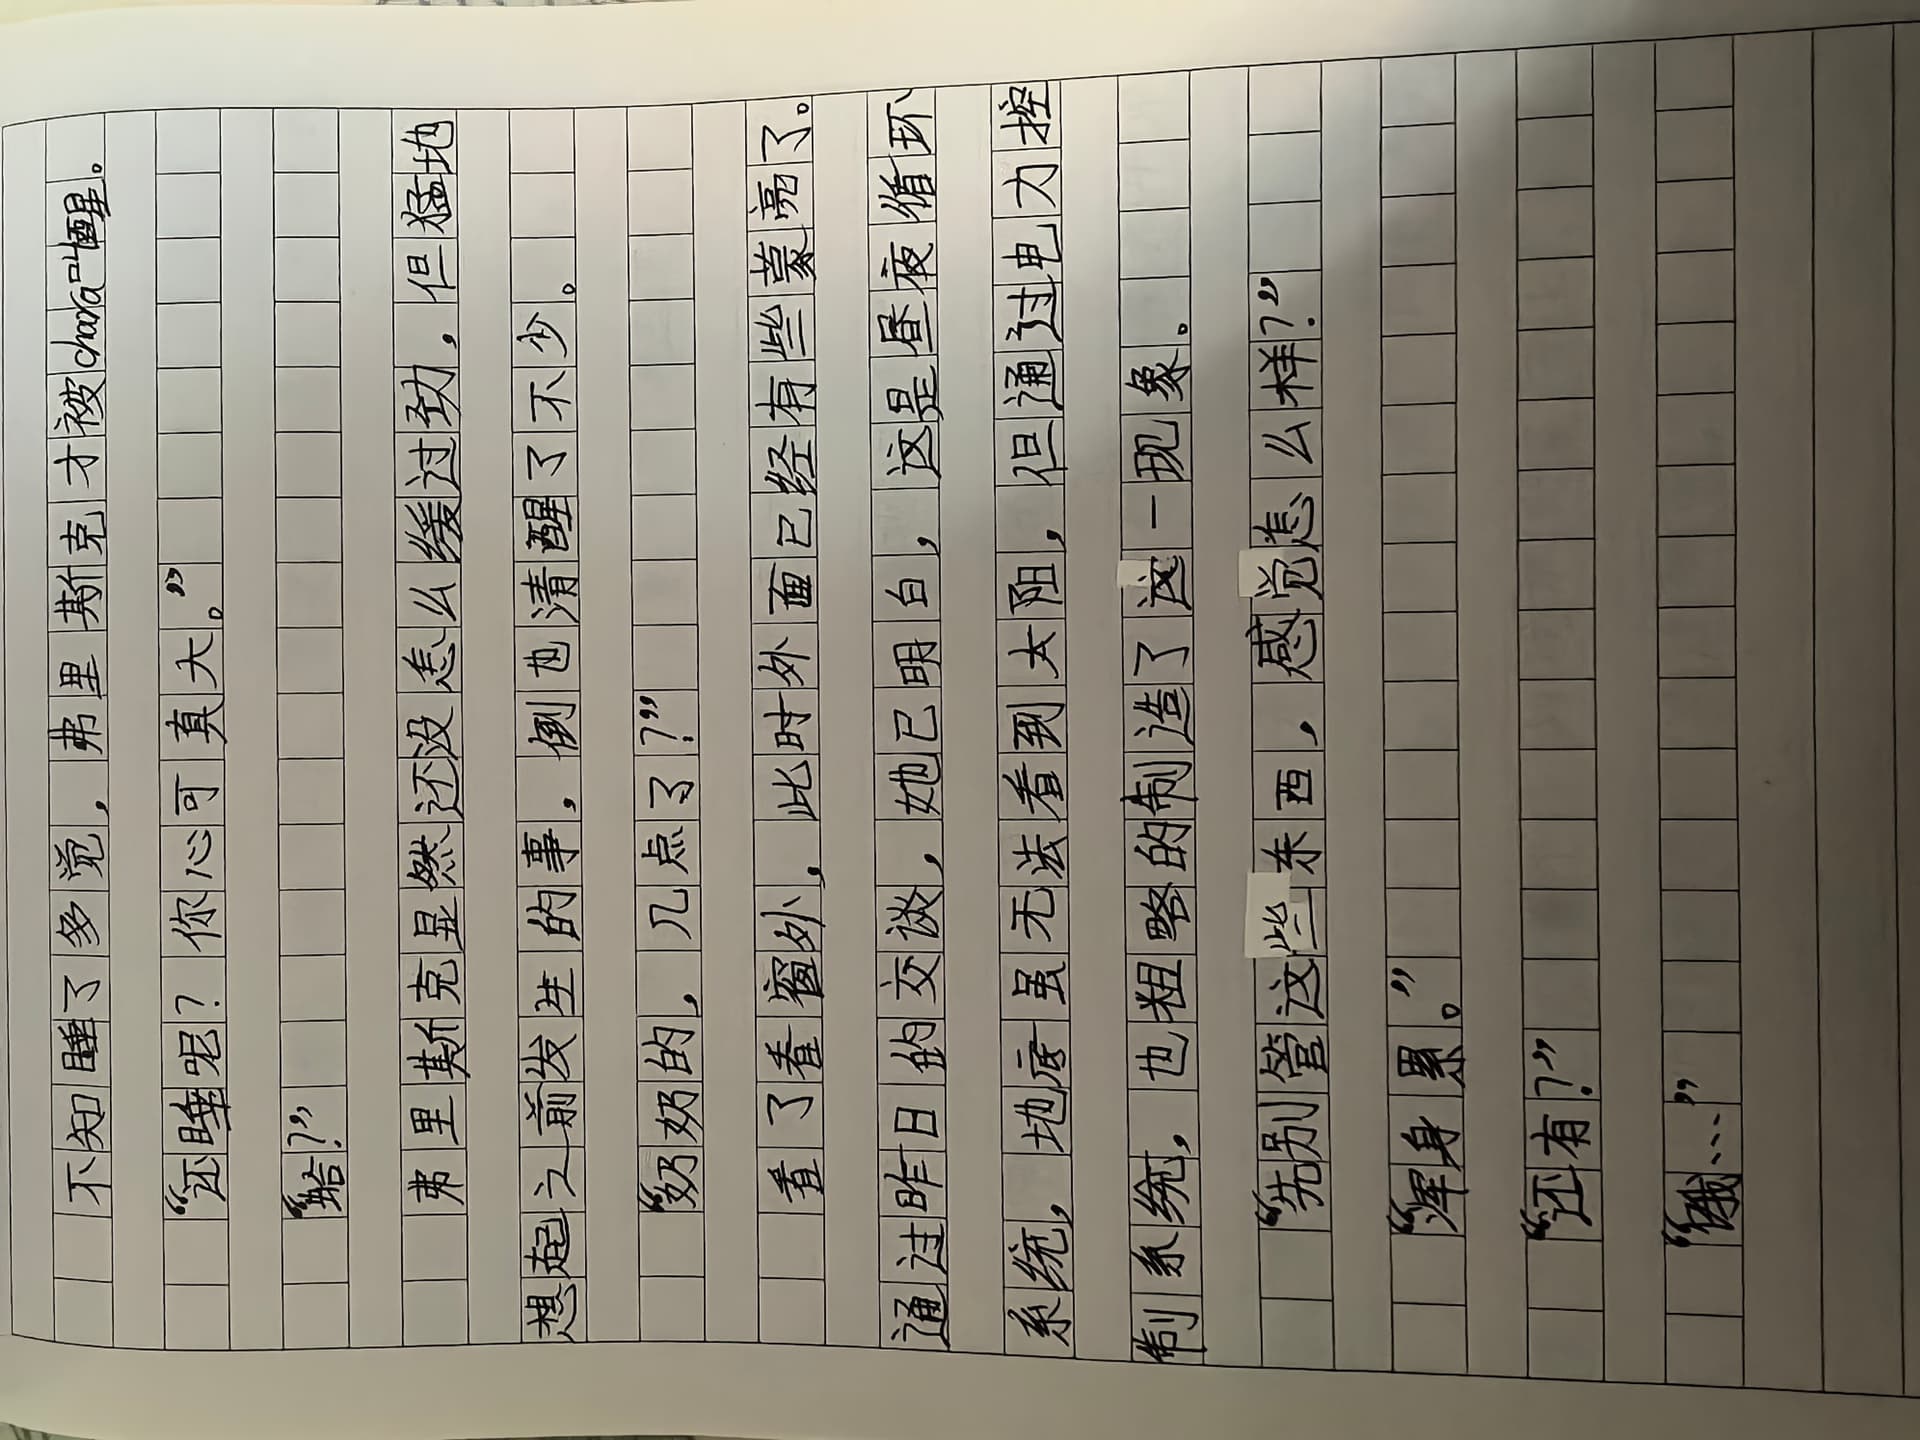 不知睡了多觉，弗里斯克才被chara叫醒。
“还睡呢？你心可真大。”
“啥？”
弗里斯克显然还没怎么缓过劲，但猛地
想起之前发生的事，倒也清醒了不少。
“奶奶的，几点了？”
看了看窗外，此时外面已经有些蒙亮了。
通过昨日的交谈，她已明白，这是昼夜循环
系统，地底虽无法看到太阳，但通过电力控
制系统，也粗略的制造了这一现象。
“先别管这些东西，感觉怎么样？”
“浑身累。”
“还有？”
“饿…”